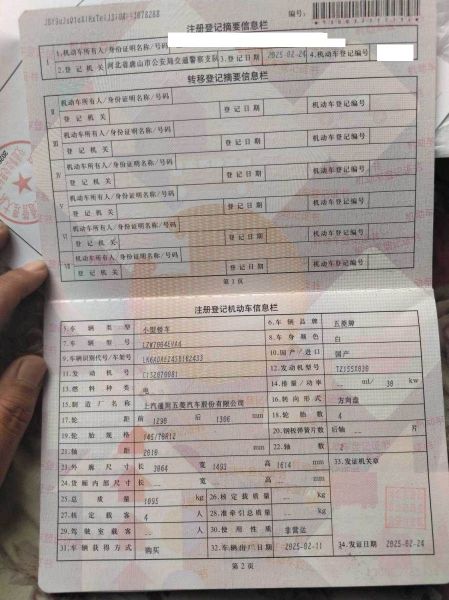 注册登记摘要信息栏
编号:
1.机动车所有人/身份证明名称/号码
2.登记机关 河北省唐山市公安局交通警察支队 3.登记日期 2025-02-24 4.机动车登记编号
转移登记摘要信息栏
机动车所有人/身份证明名称/号码
登记机关 登记日期 机动车登记编号
机动车所有人/身份证明名称/号码
登记机关 登记日期 机动车登记编号
机动车所有人/身份证明名称/号码
登记机关 登记日期 机动车登记编号
机动车所有人/身份证明名称/号码
登记机关 登记日期 机动车登记编号
机动车所有人/身份证明名称/号码
登记机关 登记日期 机动车登记编号
机动车所有人/身份证明名称/号码
登记机关 登记日期 机动车登记编号
第1页
注册登记机动车信息栏
5.车辆类型 小型轿车 6.车辆品牌 五菱牌
7.车辆型号 8.车身颜色 白
9.车辆识别代号/车架号 10.国产/进口 国产
11.发动机号 12.发动机型号 TZ155X030
13.燃料种类 电 14.排量/功率 -- ml/ 30 kw
15.制造厂名称 上汽通用五菱汽车股份有限公司 16.转向形式 方向盘
17.轮距 前 1290 后 1306 mm 18.轮胎数 4
19.轮胎规格 145/70R12 20.钢板弹簧片数 后轴 -- 片
21.轴距 2010 mm 22.轴数 2
23.外廓尺寸 长 3064 宽 1493 高 1614 mm 33.发证机关章
24.货厢内部尺寸 长 -- 宽 -- 高 -- mm
25.总质量 1095 kg 26.核定载质量 -- kg
27.核定载客 4 人 28.准牵引总质量 -- kg
29.驾驶室载客 -- 人 30.使用性质 非营运
31.车辆获得方式 购买 32.车辆出厂日期 2025-02-11 34.发证日期 2025-02-24
第2页